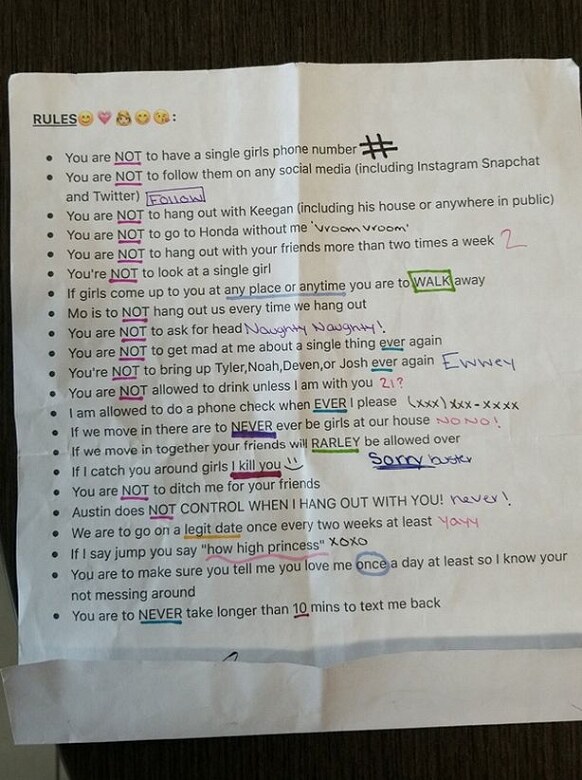 RULES😊💗👸😋😘:
• You are NOT to have a single girls phone number #
• You are NOT to follow them on any social media (including Instagram Snapchat
and Twitter) Follow
• You are NOT to hang out with Keegan (including his house or anywhere in public)
• You are NOT to go to Honda without me 'vroom vroom'
• You are NOT to hang out with your friends more than two times a week 2
• You're NOT to look at a single girl
• If girls come up to you at any place or anytime you are to WALK away
• Mo is to NOT hang out us every time we hang out
• You are NOT to ask for head Naughty Naughty!
• You are NOT to get mad at me about a single thing ever again
• You're NOT to bring up Tyler,Noah,Deven,or Josh ever again Ewwey
• You are NOT allowed to drink unless I am with you 21?
• I am allowed to do a phone check when EVER I please (xxx)xxx-xxxx
• If we move in there are to NEVER ever be girls at our house NO NO!
• If we move in together your friends will RARLEY be allowed over
• If I catch you around girls I kill you :) Sorry buster
• You are NOT to ditch me for your friends
• Austin does NOT CONTROL WHEN I HANG OUT WITH YOU! never!
• We are to go on a legit date once every two weeks at least Yayy
• If I say jump you say "how high princess" xoxo
• You are to make sure you tell me you love me once a day at least so I know your
not messing around
• You are to NEVER take longer than 10 mins to text me back